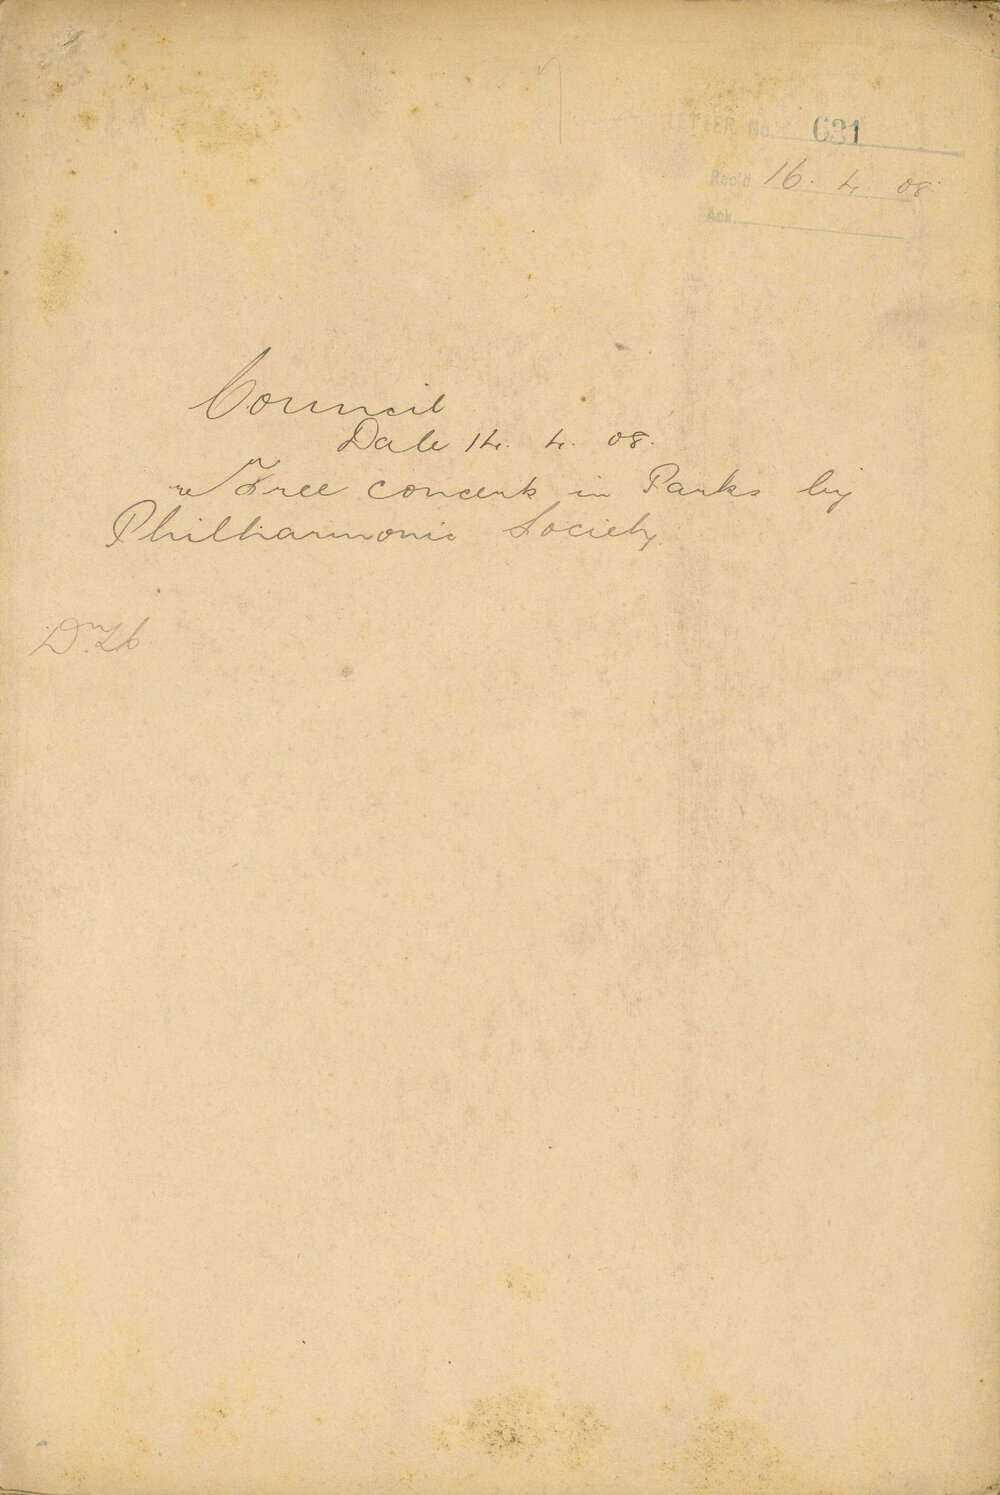 LETTER No. 631
Rec'd 16. 4. 08.
Ack.
Council
Date 14. 4. 08.
re Free concerts in Parks by
Philharmonic Society.